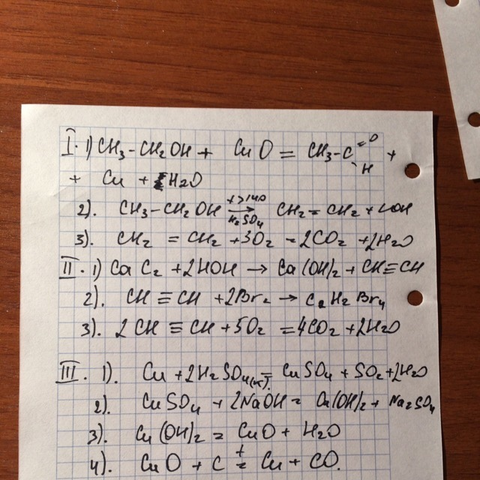 I. 1) CH3-CH2OH + CuO = CH3-C=O H +
+ Cu + H2O
2). CH3-CH2OH t>140 → H2SO4 CH2=CH2 + HOH
3). CH2 = CH2 + 3O2 = 2CO2 + 2H2O
II. 1) CaC2 + 2HOH → Ca(OH)2 + CH≡CH
2). CH≡CH + 2Br2 → C2H2Br4
3). 2CH≡CH + 5O2 = 4CO2 + 2H2O
III. 1). Cu + 2H2SO4(к). = CuSO4 + SO2 + 2H2O
2). CuSO4 + 2NaOH = Cu(OH)2 + Na2SO4
3). Cu(OH)2 = CuO + H2O
4). CuO + C t= Cu + CO.